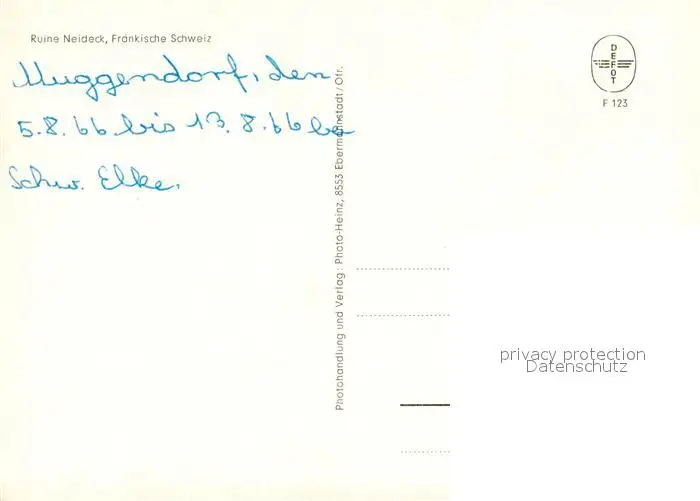 Ruine Neideck, Fränkische Schweiz
Muggendorf, den
5.8.66 bis 13.8.66 be
Schw. Elke.
Photohandlung und Verlag: Photo-Heinz, 8553 Ebermannstadt/Ofr.
DEFOT
F 123
privacy protection
Datenschutz